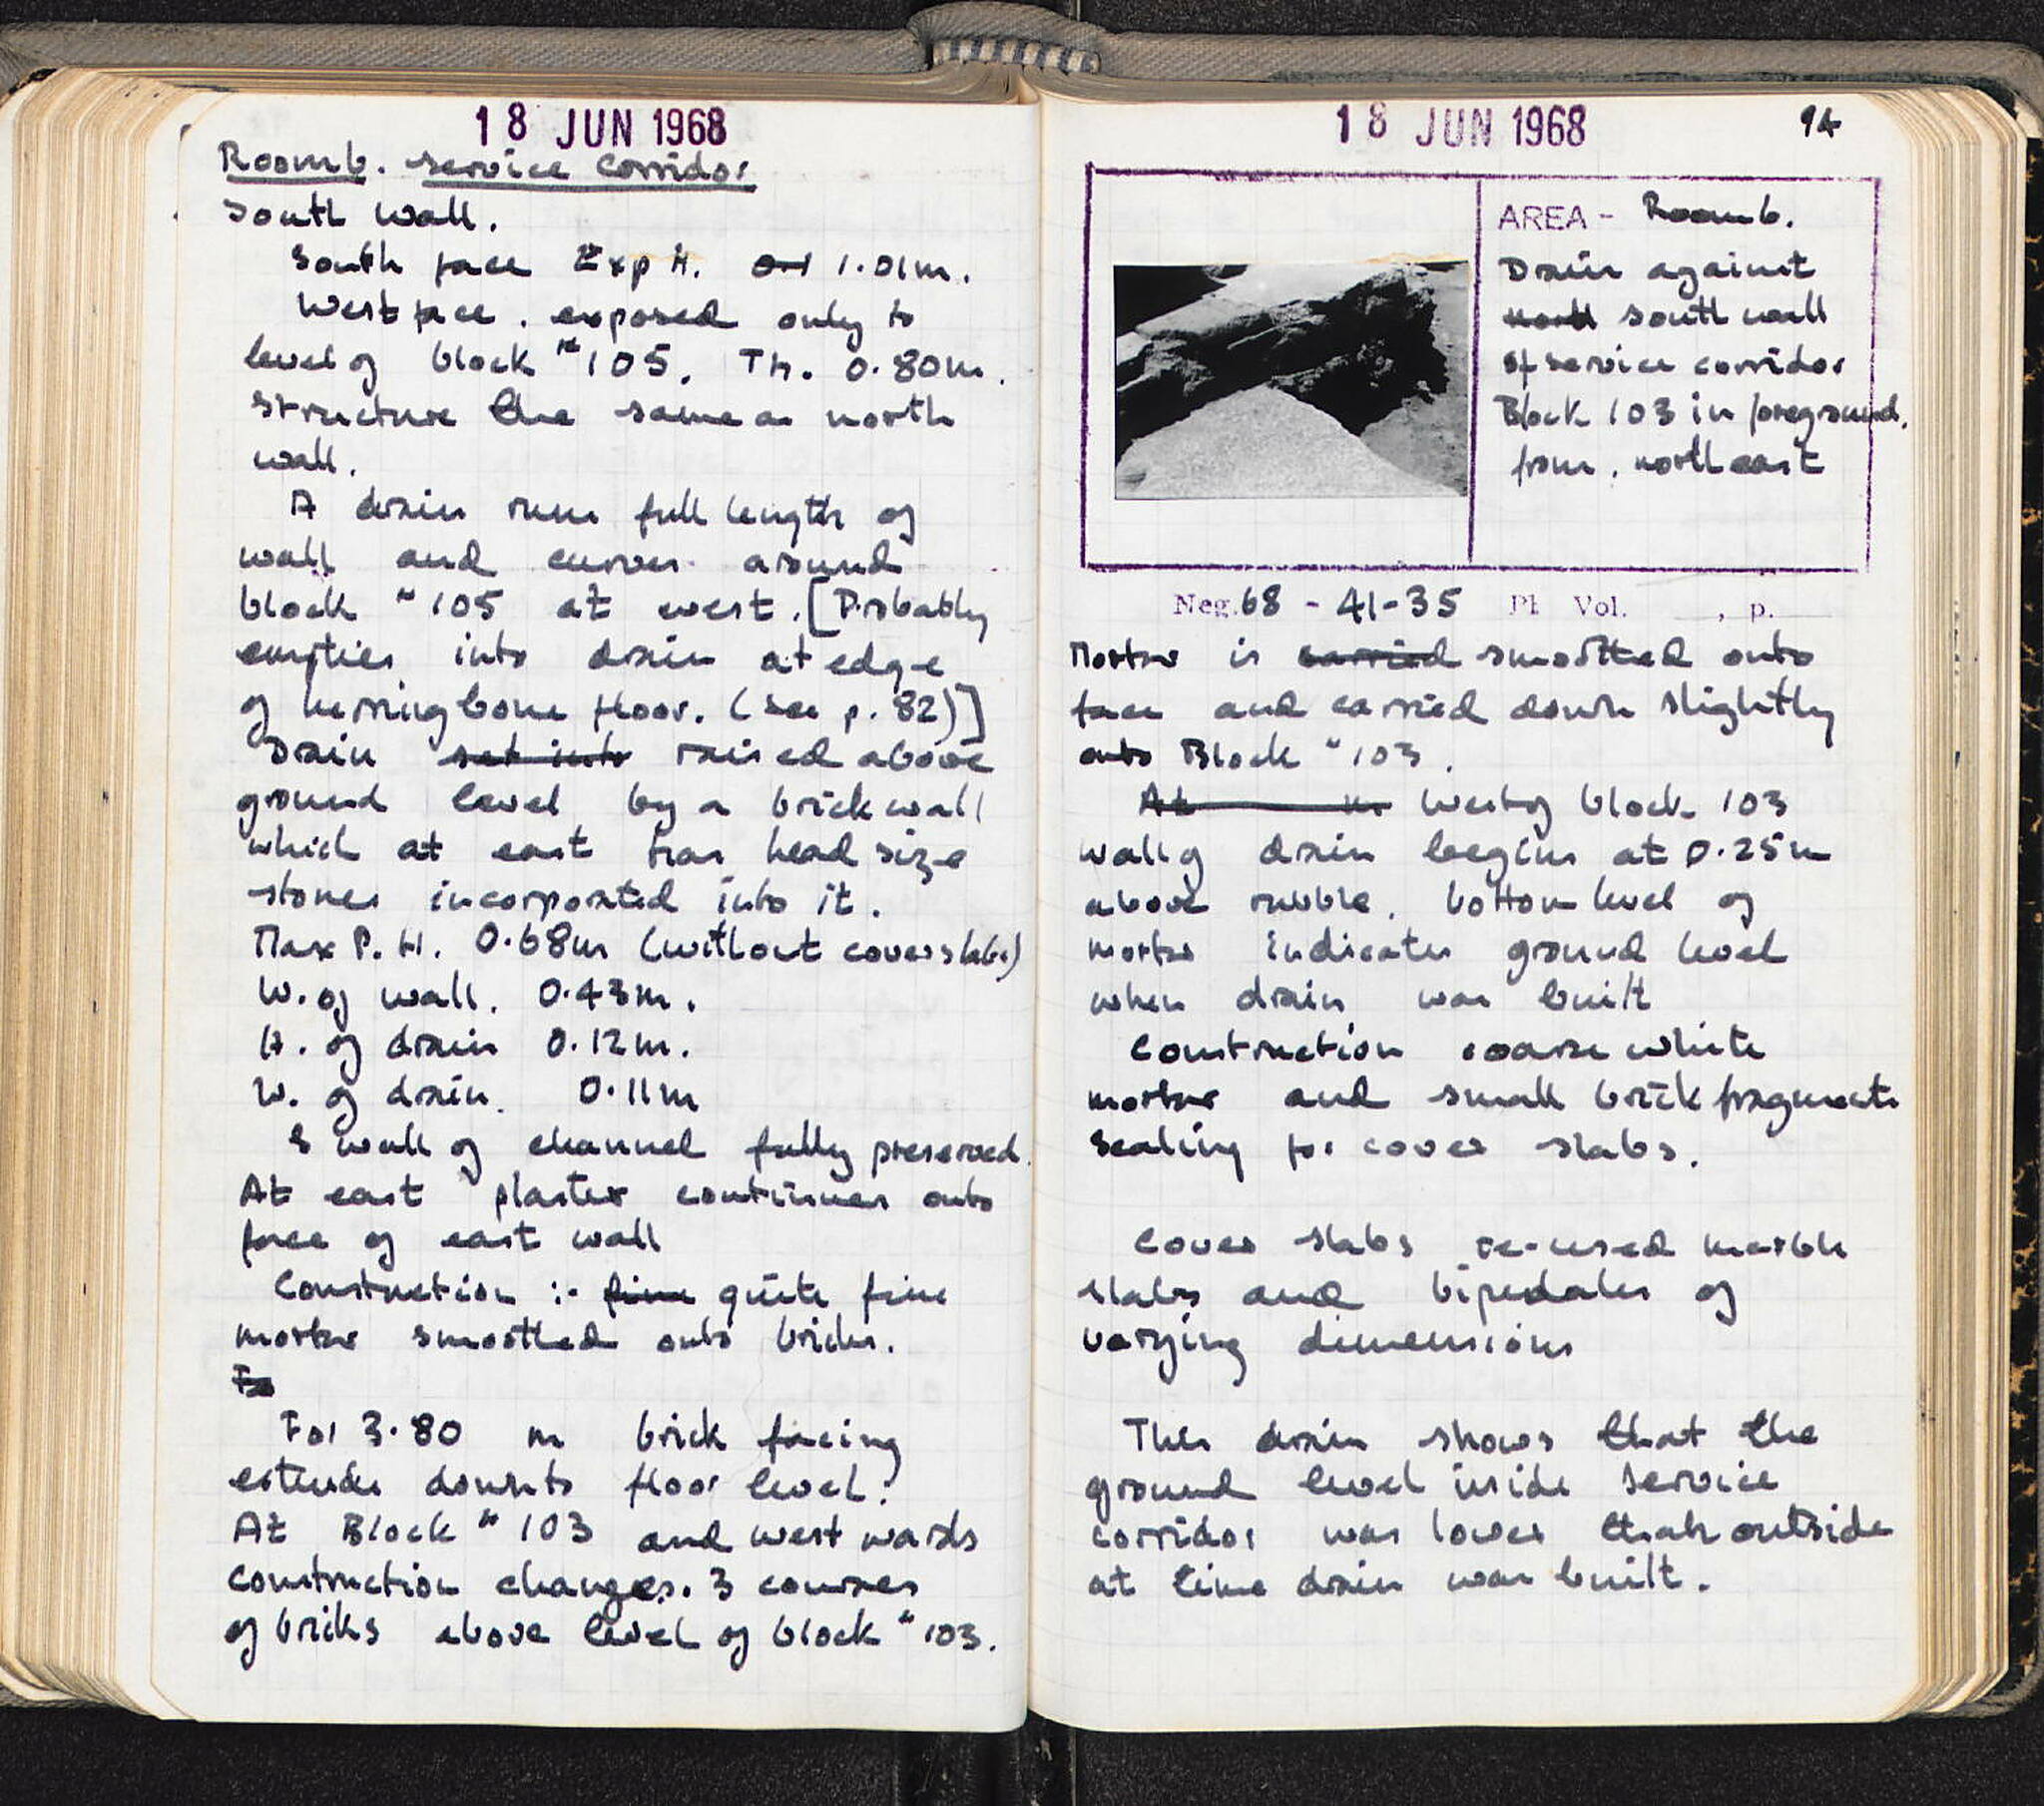 18 JUN 1968
Room 6. service corridor
South wall.
South face Exp H. 0.1 1.01m.
West face. exposed only to
level of block #105. Th. 0.80m.
structure the same as north
wall.
A drain runs full length of
wall and curves around
block "105 at west. [Probably
empties into drain at edge
of herringbone floor. (see p. 82)]
Drain set into raised above
ground level by a brick wall
which at east has head size
stones incorporated into it.
Max P. H. 0.68m (without coverslabs)
W. of wall. 0.43m.
H. of drain 0.12m.
W. of drain. 0.11m
S wall of channel fully preserved.
At east plaster continues onto
face of east wall
Construction :- fine quite fine
mortar smoothed onto bricks.
Fo
For 3.80 m brick facing
extends down to floor level.
At Block # 103 and westwards
construction changes. 3 courses
of bricks above level of block "103.
18 JUN 1968
94
AREA - Room 6.
Drain against
north south wall
of service corridor
Block 103 in foreground.
from. northeast
Neg. 68 - 41-35 Pl Vol. , p.
Mortar is carried smoothed onto
face and carried down slightly
onto Block "103.
At West of block 103
wall of drain begins at 0.25m
above rubble. bottom level of
mortar indicates ground level
when drain was built
Construction coarse white
mortar and small brick fragments
sealing for cover slabs.
Cover slabs re-used marble
slabs and bipedales of
varying dimensions
This drain shows that the
ground level inside service
corridor was lower than outside
at time drain was built.